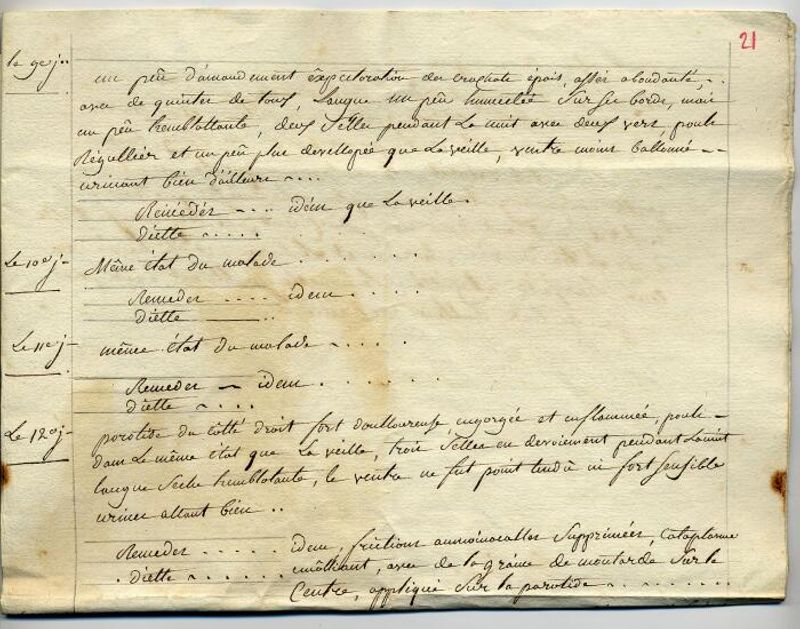 21
le 9e j..
un peu d'amandement éxpectoration des crachats épais, assés abondante, ..
avec de quintes de tous, Langue un peu humectée Sur ses bords, mais
un peu tremblottante, deux Selles pendant La nuit avec deux vers, pouls
Régullier et un peu plus devellopée que La veille, ventre moins ballonné --
urinant bien d'ailleurs ....
Remédes .... idem que La veille.
diette .....
Le 10e j-
Même état du malade .......
Remedes .... idem ....
diette
Le 11e j-
même état du malade .....
Remedes - idem .......
diette ....
Le 12e j-
parotide du cotté droit fort doulloureuse, engorgée et enflammée, pouls -
dans Le même état que La veille, trois Selles en devoiement pendant La nuit
langue Seche tremblotante, le ventre ne fut point tendu ni fort Sensible
urines allant bien ..
Remedes ..... idem, frictions ammoniacalles Supprimées, Cataplasme
. diette ...... emolliant, avec de la graine de moutarde Sur le
Centre, appliqué Sur la parotide ........